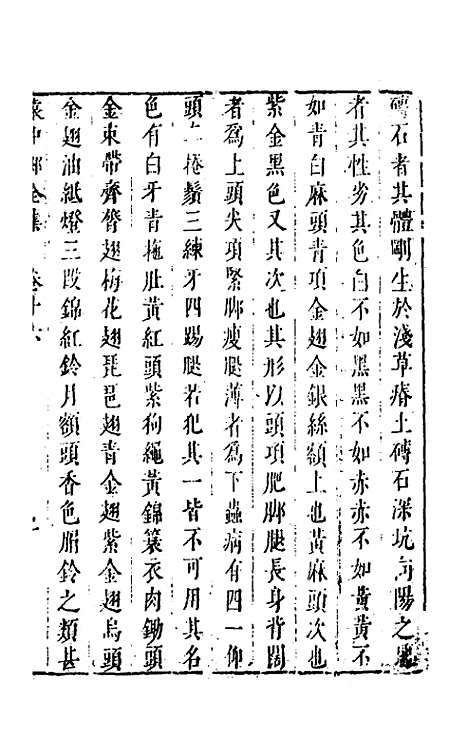 磚石者其體剛生於淺草瘠土磚石深坑向陽之
者其性劣其色白不如黑黑不如赤赤不如黃黃不
如青白麻頭青項金翅金銀絲額上也黃麻頭次也
紫金黑色又其次也其形以頭項肥脚腿長身背闊
者爲上頭尖項緊脚瘦腿薄者爲下蟲病有四一仰
頭二捲鬚三練牙四踢腿若犯其一皆不可用其名
色有白牙青拖肚黃紅頭紫狗繩黃錦簑衣肉鋤頭
金束帶齊膂翅梅花翅琵琶翅青金翅紫金翅烏頭
金翅油紙燈三段錦紅鈴月額頭香色肩鈴之類甚
袁中郎全集 卷十六